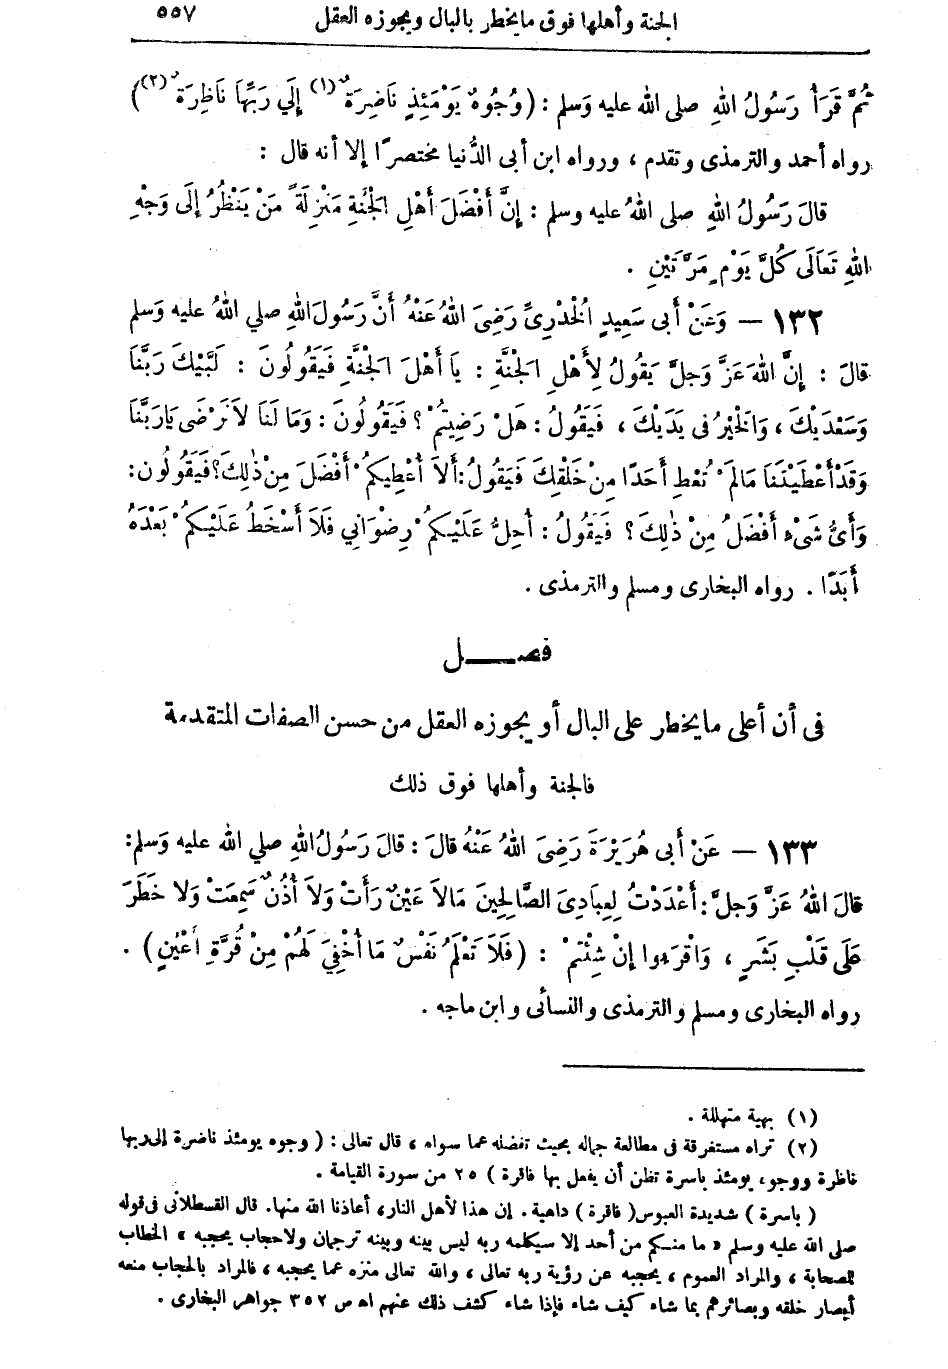 الجنة وأهلها فوق ما يخطر بالبال ويجوزه العقل ٥٥٧
ثُمَّ قَرَأَ رَسُولُ اللهِ صلى الله عليه وَسلم : (وُجُوهٌ يَوْمَئِذٍ نَاضِرَةٌ (١) إِلَي رَبِّهَا نَاظِرَةٌ (٢))
رواه أحمد والترمذى وتقدم ، ورواه ابن أبى الدُّنيا مختصرًا إلا أنه قال :
قالَ رَسُولُ اللهِ صلى اللهُ عليه وسلم : إِنَّ أَفْضَلَ أَهْلِ الْجَنَّةِ مَنْزِلَةً مَنْ يَنْظُرُ إِلَى وَجْهِ
اللهِ تَعَالَى كُلَّ يَوْمٍ مَرَّتَيْنِ .
١٣٢ — وَعَنْ أَبى سَعِيدٍ الْخُدْرِىِّ رَضِىَ اللهُ عَنْهُ أَنَّ رَسُولَ اللهِ صلي اللهُ عليه وَسلم
قالَ : إِنَّ اللهَ عَزَّ وَجلَّ يَقُولُ لِأَهْلِ الْجَنَّةِ : يَا أَهْلَ الْجَنَّةِ فَيَقُولُونَ : لَبَّيْكَ رَبَّنَا
وَسَعْدَيْكَ ، وَالْخَيْرُ فى يَدَيْكَ ، فَيَقُولُ : هَلْ رَضِيتُمْ ؟ فَيَقُولُونَ : وَمَا لَنَا لَا نَرْضَى يَا رَبَّنَا
وَقَدْ أَعْطَيْتَنَا مَالَمْ تُعْطِ أَحَدًا مِنْ خَلْقِكَ فَيَقُولُ : أَلَا أُعْطِيكُمْ أَفْضَلَ مِنْ ذٰلِكَ ؟ فَيَقُولُونَ :
وَأَىُّ شَىْءٍ أَفْضَلُ مِنْ ذٰلِكَ ؟ فَيَقُولُ : أُحِلُّ عَلَيْكُمْ رِضْوَانِي فَلَا أَسْخَطُ عَلَيْكُمْ بَعْدَهُ
أَبَدًا . رواه البخارى ومسلم والترمذى .
فصــــل
فى أن أعلى ما يخطر على البال أو يجوزه العقل من حسن الصفات المتقدمة
فالجنة وأهلها فوق ذلك
١٣٣ — عَنْ أَبى هُرَيْرَةَ رَضِىَ اللهُ عَنْهُ قالَ : قالَ رَسُولُ اللهِ صلي الله عليه وَسلم :
قالَ اللهُ عَزَّ وَجلَّ : أَعْدَدْتُ لِعِبَادِىَ الصَّالِحِينَ مَالَا عَيْنٌ رَأَتْ وَلَا أُذُنٌ سَمِعَتْ وَلَا خَطَرَ
عَلَى قَلْبِ بَشَرٍ ، وَاقْرَءوا إِنْ شِئْتمْ : (فَلَا تَعْلَمُ نَفْسٌ مَا أُخْفِيَ لَهُمْ مِنْ قُرَّةِ أَعْيُنٍ) .
رواه البخارى ومسلم والترمذى والنسائى وابن ماجه .
(١) بهية متهللة .
(٢) تراه مستغرقة فى مطالعة جماله بحيث تغفله عما سواه ، قال تعالى : ( وجوه يومئذ ناضرة إلى ربها
ناظرة ووجوه يومئذ باسرة تظن أن يفعل بها فاقرة ) ٢٥ من سورة القيامة .
( باسرة ) شديدة العبوس ( فاقرة ) داهية . إن هذا لأهل النار، أعاذنا الله منها. قال القسطلانى فى قوله
صلى الله عليه وسلم « ما منكم من أحد إلا سيكلمه ربه ليس بينه وبينه ترجمان ولا حجاب يحجبه » الخطاب
للصحابة ، والمراد العموم ، يحجبه عن رؤية ربه تعالى ، والله تعالى منزه عما يحجبه ، فالمراد بالحجاب منعه
أبصار خلقه وبصائرهم بما شاء كيف شاء فإذا شاء كشف ذلك عنهم اه ص ٣٥٢ جواهر البخارى .